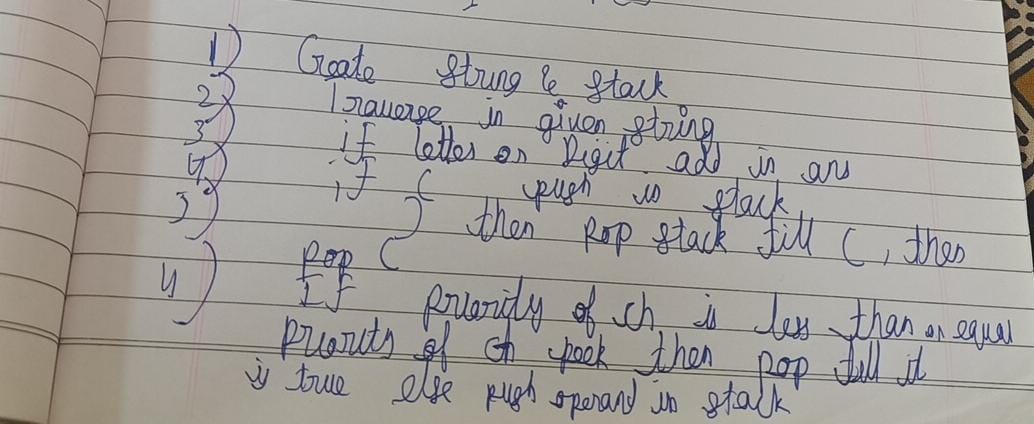 1) Create string & stack
2) Traverse in given string
3) if letter or Digit add in ans
4) if ( push in stack
5) ) then pop stack till (, then
pop (
4) If priority of ch is less than or equal
priority of peek then pop till it
is true else push operand in stack